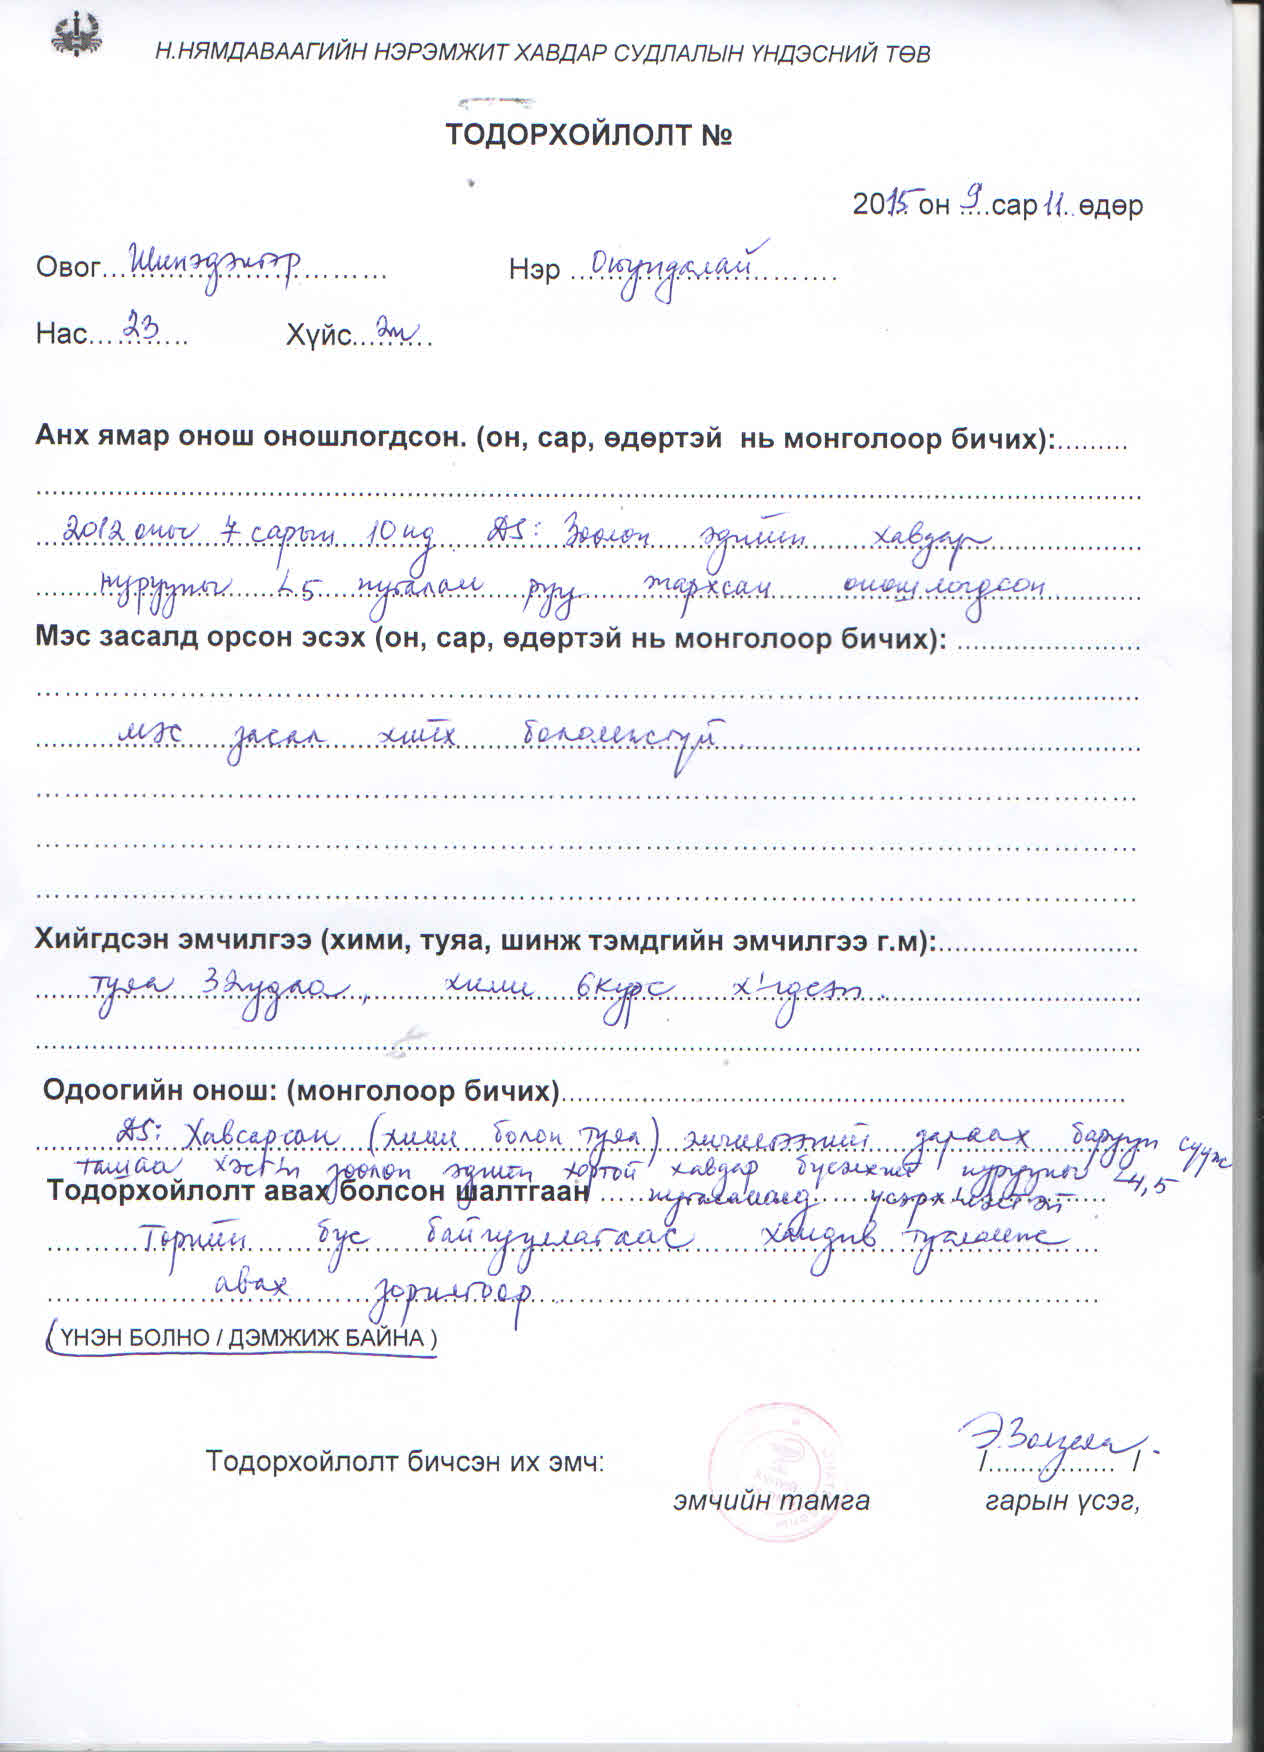 Н.НЯМДАВААГИЙН НЭРЭМЖИТ ХАВДАР СУДЛАЛЫН ҮНДЭСНИЙ ТӨВ
ТОДОРХОЙЛОЛТ №
2015 он 9 сар 11 өдөр
Овог... Шинэдэлгэр Нэр ... Оюундалай
Нас... 23 Хүйс... эм
Анх ямар онош оношлогдсон. (он, сар, өдөртэй нь монголоор бичих):
2012 оны 7 сарын 10нд DS: Зөөлөн эдийн хавдар
нурууны L5 нугалам руу тархсан оношлогдсон
Мэс засалд орсон эсэх (он, сар, өдөртэй нь монголоор бичих):
мэс засал хийх боломжгүй.
Хийгдсэн эмчилгээ (хими, туяа, шинж тэмдгийн эмчилгээ г.м):
туяа 32удаа, хими 6курс х-гдсэн.
Одоогийн онош: (монголоор бичих)
DS: Хавсарсан (хими болон туяа) эмчилгээний дараах баруун сууж
ташаа хэсгийн зөөлөн эдийн хортой хавдар бүсэлхий нурууны L4,5
Тодорхойлолт авах болсон шалтгаан нугаламд үсэрхийлэлтэй
Төрийн бус байгууллагаас хандив тусламж
авах зорилгоор
(ҮНЭН БОЛНО / ДЭМЖИЖ БАЙНА )
Тодорхойлолт бичсэн их эмч: /Э.Золзаяа/
эмчийн тамга гарын үсэг,